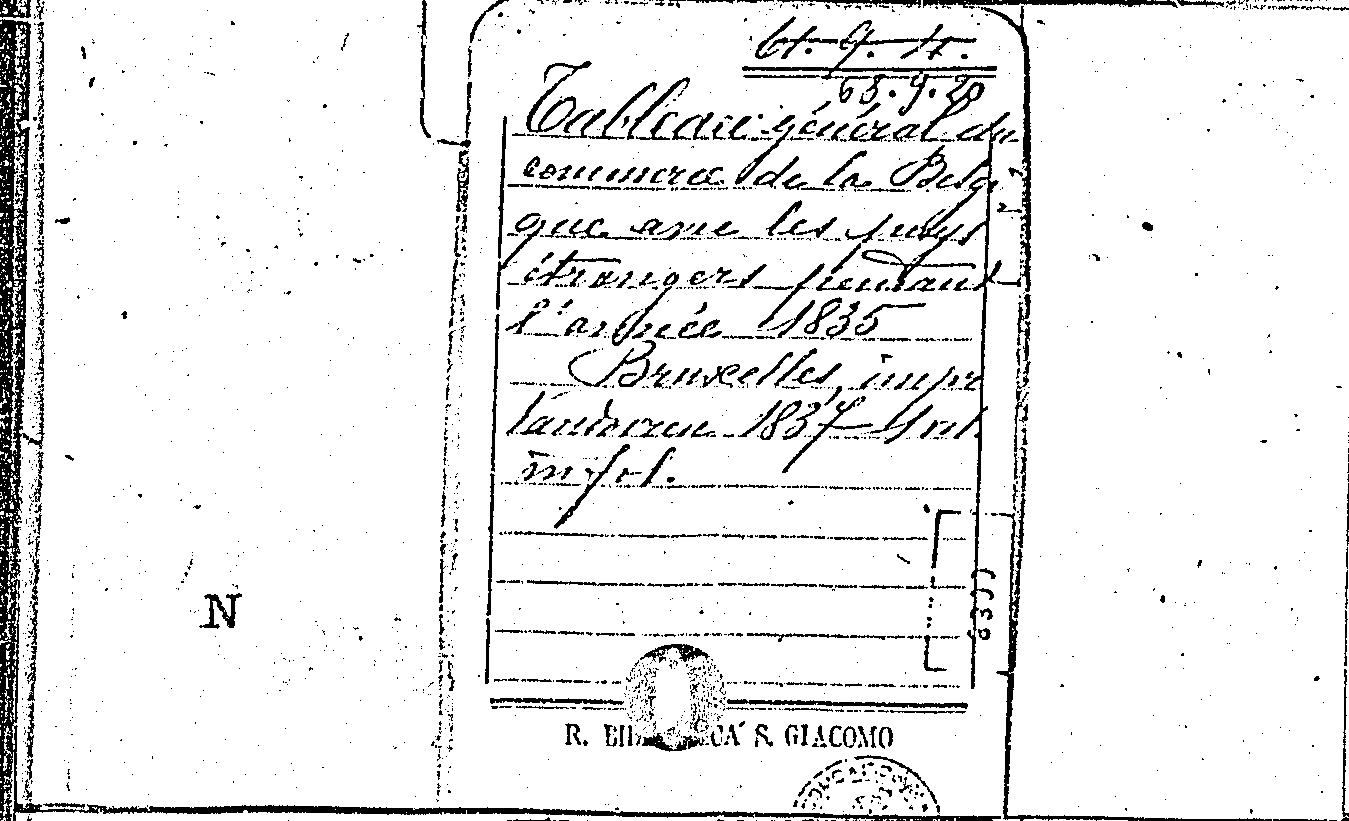 61.9.4.
68.9.20
Tableau général du
commerce de la Belgi
que avec les pays
étrangers pendant
l'année 1835
Bruxelles, impr
Vandooren 1837 1 vol.
in fol.
N
R. BIB CA S. GIACOMO